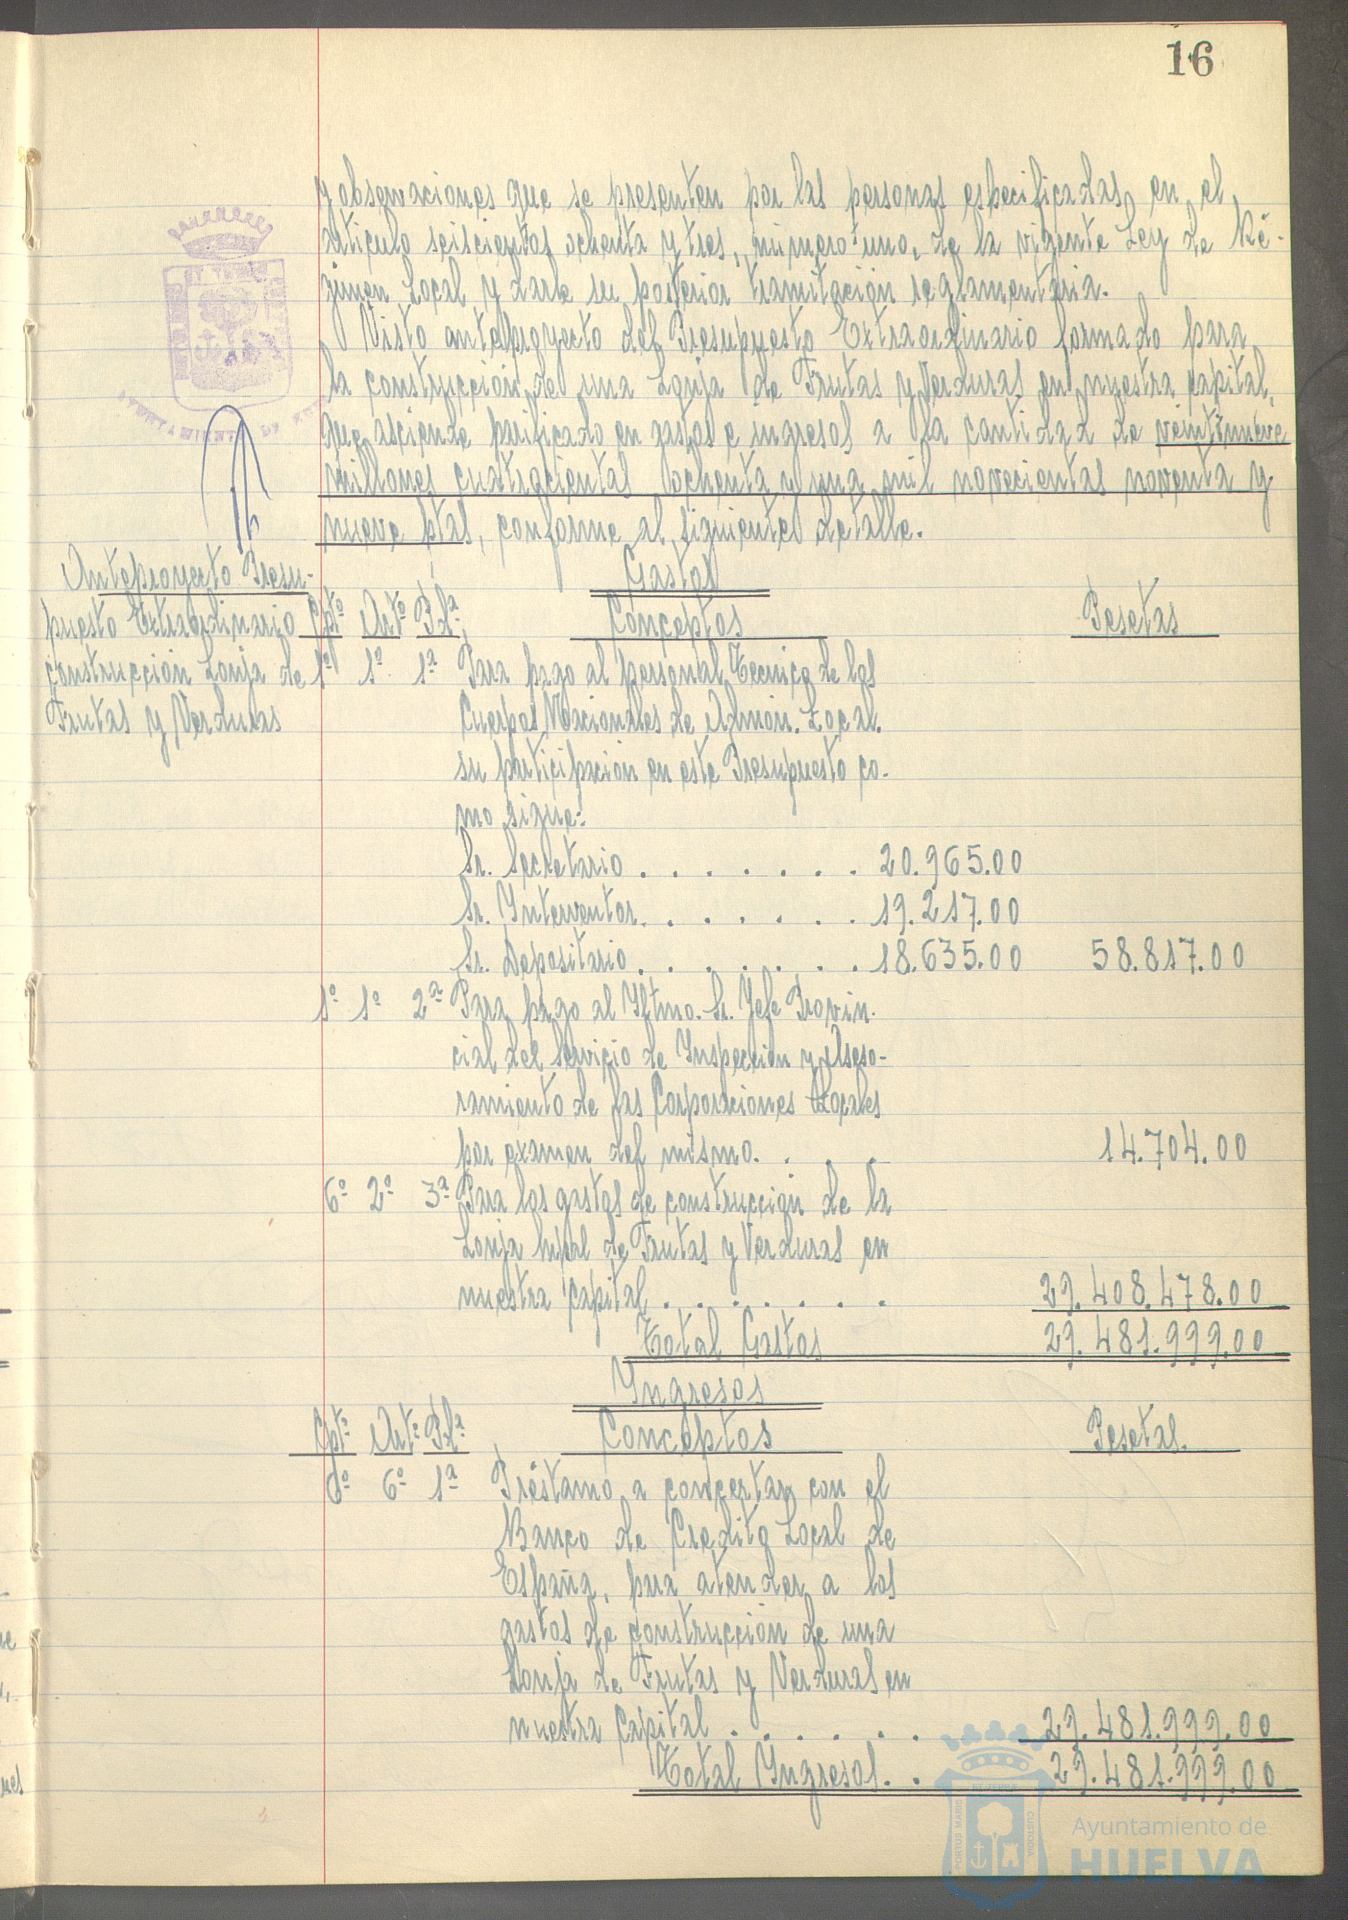 16
y observaciones que se presenten por las personas especificadas en el
artículo seiscientos ochenta y tres, número uno, de la vigente Ley de Ré-
gimen Local y darle su posterior tramitación reglamentaria.
Visto anteproyecto del Presupuesto Extraordinario formado para
la construcción de una Lonja de Frutas y Verduras en nuestra capital,
que asciende parificado en gastos e ingresos a la cantidad de veintinueve
millones cuatrocientas ochenta y una mil novecientas noventa y
nueve ptas, conforme al siguiente detalle.
Anteproyecto Presu-
puesto Extraordinario
construcción Lonja de
Frutas y Verduras
Gastos
Cptº Artº Pdª Conceptos Pesetas
1º 1º 1ª Para pago al personal Tecnico de los
Cuerpos Nacionales de Admón. Local.
su participación en este Presupuesto co-
mo sigue:
Sr. Secretario . . . . . . . 20.965.00
Sr. Interventor. . . . . . . 19.217.00
Sr. Depositario . . . . . . . 18.635.00 58.817.00
1º 1º 2ª Para pago al Yltmo. Sr. Jefe Provin-
cial del Servicio de Inspección y Aseso-
ramiento de las Corporaciones Locales
por examen del mismo. . . . 14.704.00
6º 2º 3ª Para los gastos de construcción de la
Lonja Mpal de Frutas y Verduras en
nuestra capital . . . . . . . 29.408.478.00
Total Gastos 29.481.999.00
Yngresos
Cptº Artº Pdª Conceptos Pesetas.
6º 1ª Préstamo a concertar con el
Banco de Credito Local de
España, para atender a los
gastos de construcción de una
Lonja de Frutas y Verduras en
nuestra Capital . . . . . . 29.481.999.00
Total Yngresos. . 29.481.999.00
PORTUS MARIS
CUSTODIA
Ayuntamiento de
HUELVA